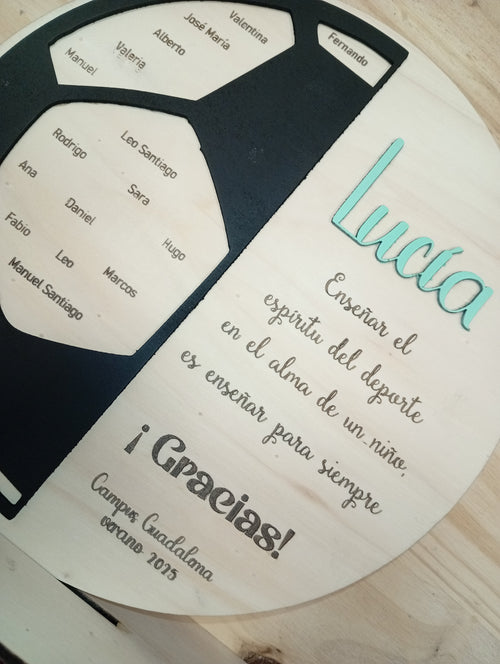 Valentina
José María
Alberto
Valeria
Manuel
Fernando
Rodrigo
Leo Santiago
Ana
Sara
Daniel
Fabio
Hugo
Leo
Marcos
Manuel Santiago
Lucía
Enseñar el
espíritu del deporte
en el alma de un niño,
es enseñar para siempre
¡Gracias!
Campus Guadalona
verano 2025